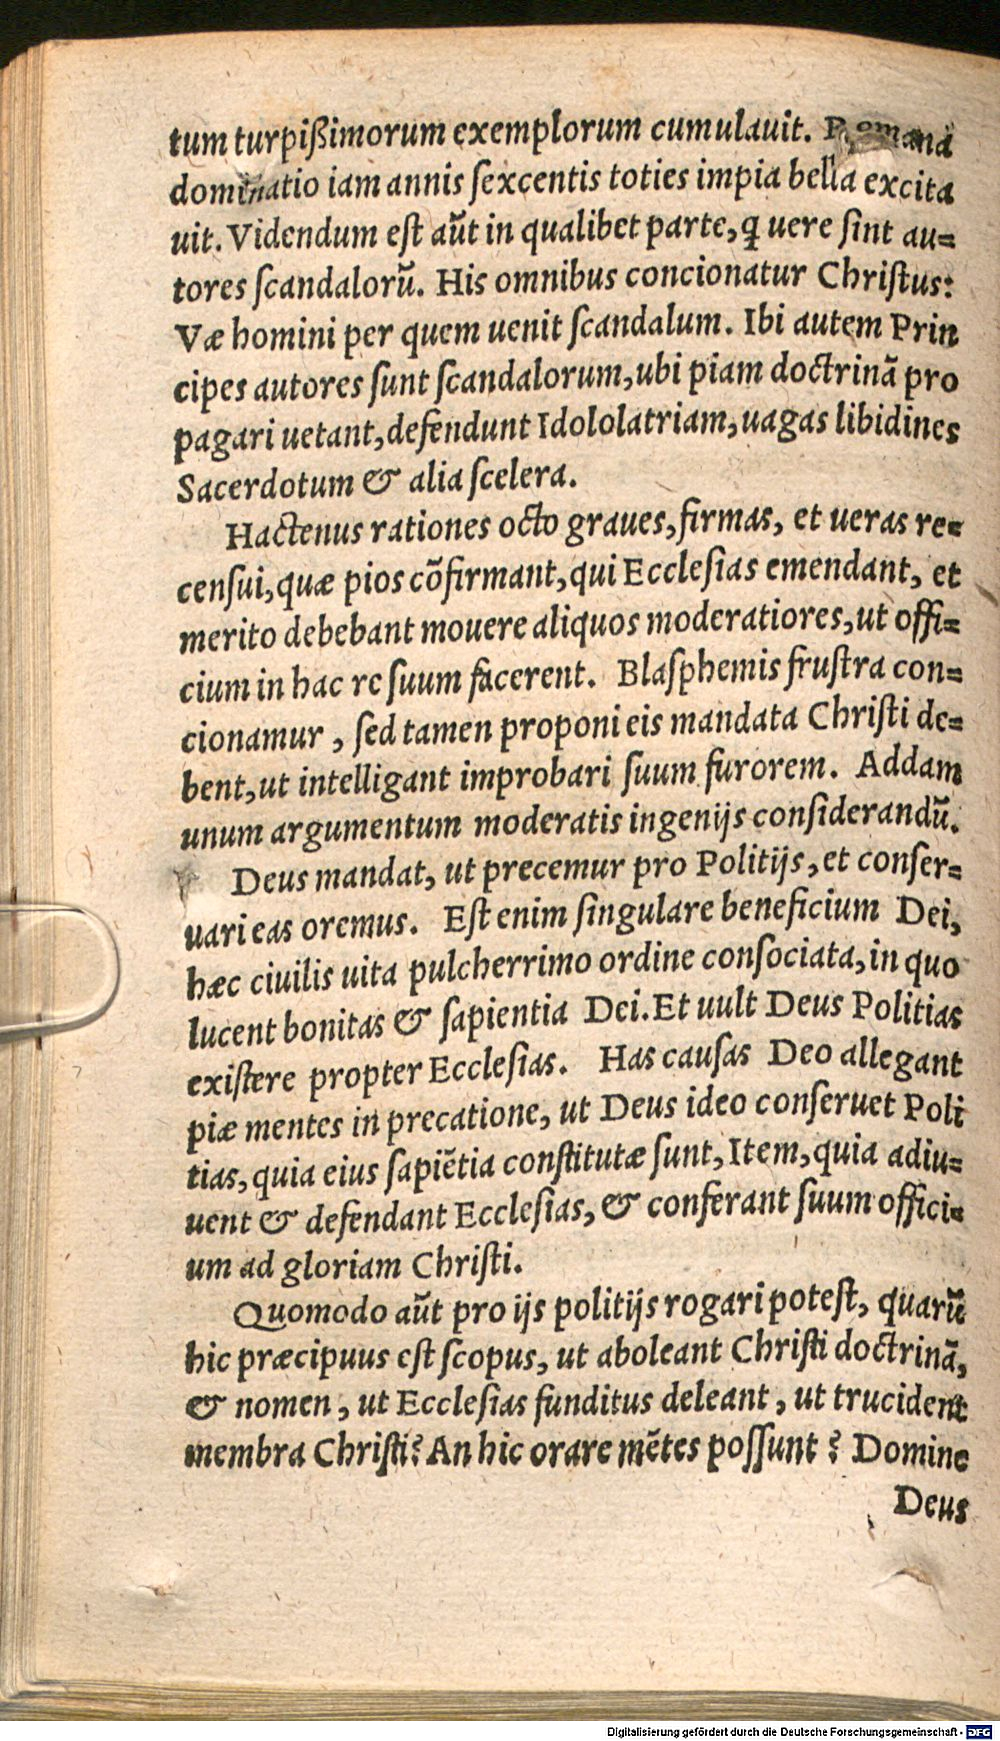 tum turpißimorum exemplorum cumulauit. Romana
dominatio iam annis ſexcentis toties impia bella excita
uit. Videndum eſt aũt in qualibet parte, ꝗ uere ſint au=
tores ſcandalorũ. His omnibus concionatur Chriſtus:
Væ homini per quem uenit ſcandalum. Ibi autem Prin
cipes autores ſunt ſcandalorum, ubi piam doctrinã pro
pagari uetant, defendunt Idololatriam, uagas libidines
Sacerdotum & alia ſcelera.
Hactenus rationes octo graues, firmas, et ueras re=
cenſui, quæ pios cõfirmant, qui Eccleſias emendant, et
merito debebant mouere aliquos moderatiores, ut offi=
cium in hac re ſuum facerent. Blaſphemis fruſtra con=
cionamur, ſed tamen proponi eis mandata Chriſti de=
bent, ut intelligant improbari ſuum furorem. Addam
unum argumentum moderatis ingenijs conſiderandũ.
Deus mandat, ut precemur pro Politijs, et conſer=
uari eas oremus. Eſt enim ſingulare beneficium Dei,
hæc ciuilis uita pulcherrimo ordine conſociata, in quo
lucent bonitas & ſapientia Dei. Et uult Deus Politias
exiſtere propter Eccleſias. Has cauſas Deo allegant
piæ mentes in precatione, ut Deus ideo conſeruet Poli
tias, quia eius ſapiẽtia conſtitutæ ſunt, Item, quia adiu=
uent & defendant Eccleſias, & conferant ſuum offici=
um ad gloriam Chriſti.
Quomodo aũt pro ijs politijs rogari poteſt, quarũ
hic præcipuus eſt ſcopus, ut aboleant Chriſti doctrinã,
& nomen, ut Eccleſias funditus deleant, ut trucident
membra Chriſti? An hic orare mẽtes poſſunt? Domine
Deus
Digitalisierung gefördert durch die Deutsche Forschungsgemeinschaft - DFG